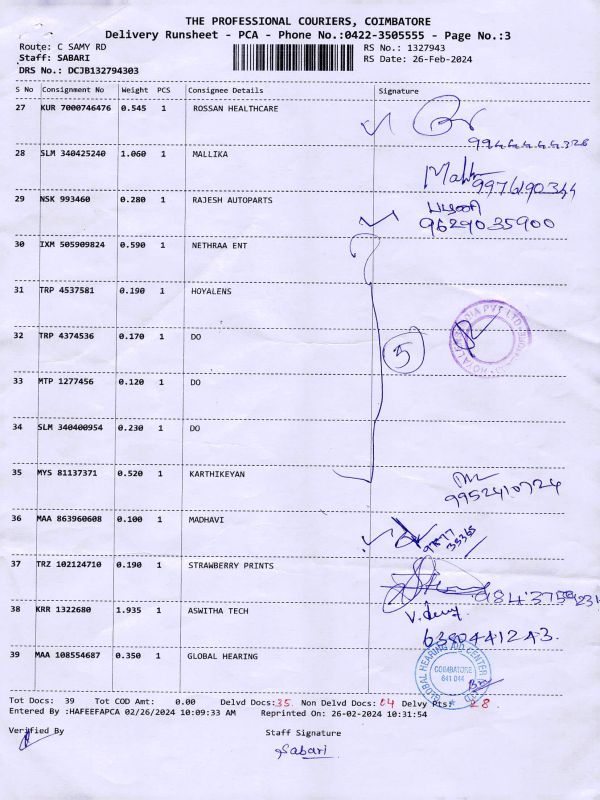 THE PROFESSIONAL COURIERS, COIMBATORE
Delivery Runsheet - PCA - Phone No.:0422-3505555 - Page No.:3
Route: C SAMY RD RS No.: 1327943
Staff: SABARI RS Date: 26-Feb-2024
DRS No.: DCJB132794303
S No Consignment No Weight PCS Consignee Details Signature
27 KUR 7000746476 0.545 1 ROSSAN HEALTHCARE
28 SLM 340425240 1.060 1 MALLIKA
29 NSK 993460 0.280 1 RAJESH AUTOPARTS
9629035900
30 IXM 505909824 0.590 1 NETHRAA ENT
31 TRP 4537581 0.190 1 HOYALENS
32 TRP 4374536 0.170 1 DO
5
33 MTP 1277456 0.120 1 DO
34 SLM 340400954 0.230 1 DO
35 MYS 81137371 0.520 1 KARTHIKEYAN
9952410724
36 MAA 863960608 0.100 1 MADHAVI
37 TRZ 102124710 0.190 1 STRAWBERRY PRINTS
38 KRR 1322680 1.935 1 ASWITHA TECH
6380441243.
39 MAA 108554687 0.350 1 GLOBAL HEARING
GLOBAL HEARING AID CENTER
COIMBATORE
641 044
Tot Docs: 39 Tot COD Amt: 0.00 Delvd Docs:35. Non Delvd Docs:04 Delvy Pts: 28.
Entered By :HAFEEFAPCA 02/26/2024 10:09:33 AM Reprinted On: 26-02-2024 10:31:54
Verified By Staff Signature
Sabari